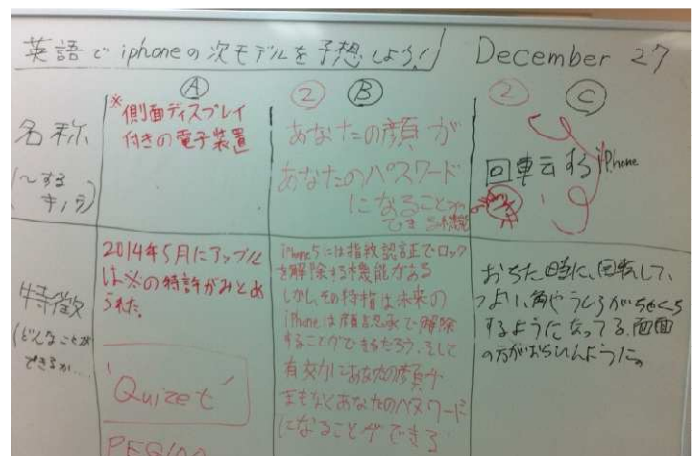 英語で iphoneの次モデルを予想しよう!
December 27
Ⓐ
② Ⓑ
② Ⓒ
名称
(〜する
※側面ディスプレイ
付きの電子装置
あなたの顔が
あなたのパスワード
になることが
できる機能
回転するiPhone
特徴
(どんなことが
できるか…
2014年5月にアップル
は※の特許がみとめ
られた。
'Quizet'
iPhone5には指紋認証でロック
を解除する機能がある
しかし、その特性は未来の
iPhoneは顔認承で解除
することができるだろう、そして
有効にあなたの顔が
まもなくあなたのパスワードに
になることができる
おちた時に、回転して、
つよい角やうしろがちゃくち
するようになってる、画面
の方がおちないように。